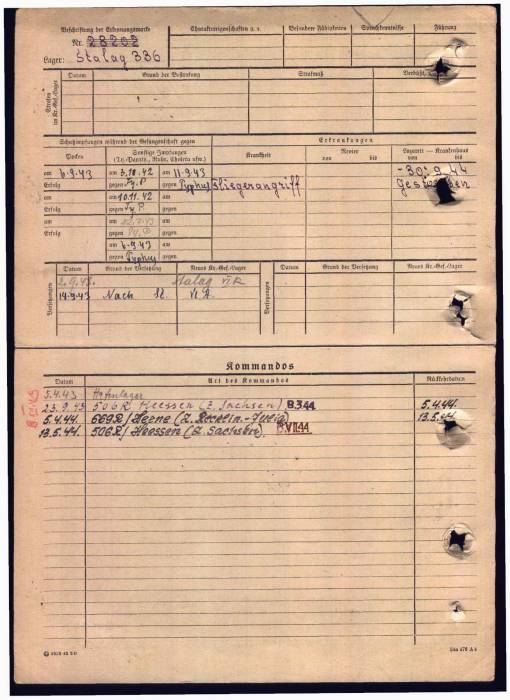 Beschriftung der Erkennungsmarke
Nr. 28202
Lager: Stalag 336
Charaktereigenschaften u. s.
Besondere Fähigkeiten
Sprachkenntnisse
Führung
Strafen im Kr.-Gef.-Lager
Datum
Grund der Bestrafung
Strafmaß
Verbüßt,
Schutzimpfungen während der Gefangenschaft gegen
Pocken
Sonstige Impfungen
(Ty.-Paraty., Ruhr, Cholera usw.)
Erkrankungen
Krankheit
Revier
von bis
Lazarett — Krankenhaus
von bis
am 6.9.43 am 3.10.42 am 11.9.43
Erfolg gegen Ty. P gegen Typhus
Fliegerangriff
-30.9.44
Gestorben
am am 10.11.42 am
Erfolg gegen Ty. P gegen
am am am
Erfolg gegen gegen
am 6.9.43 am
gegen Typhus gegen
Versetzungen
Datum Grund der Versetzung Neues Kr.-Gef.-Lager
Datum Grund der Versetzung Neues Kr.-Gef.-Lager
2.9.43. Stalag VI K
14.9.43 Nach St. VI A.
Kommandos
Datum Art des Kommandos Rückkehrdatum
5.4.43
23.9.43 506 R/ (Z. Sachsen) 8.3.44 5.4.44.
5.4.44. 669 R/ 13.5.44
13.5.44. 506 R/ Heessen (Z. Sachsen). 8.VII.44